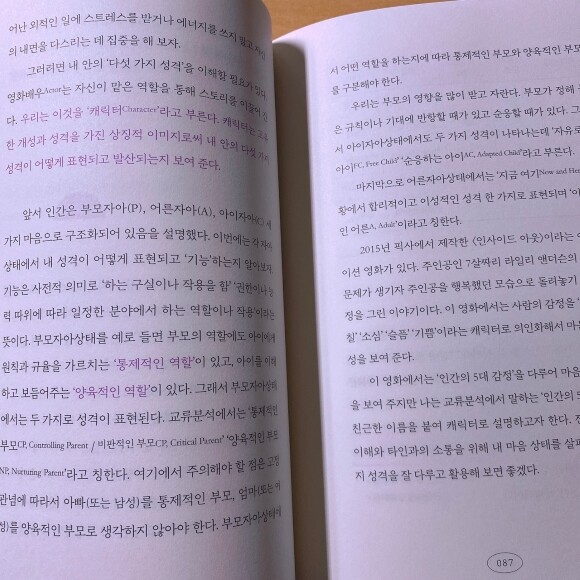 어난 외적인 일에 스트레스를 받거나 에너지를 쓰지 말고 자신
의 내면을 다스리는 데 집중을 해 보자.
그러려면 내 안의 '다섯 가지 성격'을 이해할 필요가 있다.
영화배우Actor는 자신이 맡은 역할을 통해 스토리를 이끌어 간
다. 우리는 이것을 '캐릭터Character'라고 부른다. 캐릭터는 고유
한 개성과 성격을 가진 상징적 이미지로써 내 안의 다섯 가지
성격이 어떻게 표현되고 발산되는지 보여 준다.
앞서 인간은 부모자아(P), 어른자아(A), 아이자아(C) 세
가지 마음으로 구조화되어 있음을 설명했다. 이번에는 각 자아
상태에서 내 성격이 어떻게 표현되고 '기능'하는지 알아보자.
기능은 사전적 의미로 '하는 구실이나 작용을 함' '권한이나 능
력 따위에 따라 일정한 분야에서 하는 역할이나 작용'이라는
뜻이다. 부모자아상태를 예로 들면 부모의 역할에도 아이에게
원칙과 규율을 가르치는 '통제적인 역할'이 있고, 아이를 이해
하고 보듬어주는 '양육적인 역할'이 있다. 그래서 부모자아상태
에서는 두 가지로 성격이 표현된다. 교류분석에서는 '통제적인
부모CP, Controlling Parent / 비판적인 부모CP, Critical Parent' '양육적인 부모
NP, Nurturing Parent'라고 칭한다. 여기에서 주의해야 할 점은 고정
관념에 따라서 아빠(또는 남성)를 통제적인 부모, 엄마(또는 여
성)를 양육적인 부모로 생각하지 않아야 한다. 부모자아상태에
서 어떤 역할을 하는지에 따라 통제적인 부모와 양육적인 부모
를 구분해야 한다.
우리는 부모의 영향을 많이 받고 자란다. 부모가 정해
은 규칙이나 기대에 반항할 때가 있고 순응할 때가 있다. 그
서 아이자아상태에서도 두 가지 성격이 나타나는데 '자유로
아이FC, Free Child' '순응하는 아이AC, Adapted Child'라고 부른다.
마지막으로 어른자아상태에서는 '지금 여기Now and Here
황에서 합리적이고 이성적인 성격 한 가지로 표현되며 '이
인 어른A, Adult'이라고 칭한다.
2015년 픽사에서 제작한 《인사이드 아웃》이라는
이션 영화가 있다. 주인공인 7살짜리 라일리 앤더슨의
문제가 생기자 주인공을 행복했던 모습으로 돌려놓기
정을 그린 이야기이다. 이 영화에서는 사람의 감정을
침' '소심' '슬픔' '기쁨'이라는 캐릭터로 의인화해서 마음
성을 보여 준다.
이 영화에서는 '인간의 5대 감정'을 다루어 마음
을 보여 주지만 나는 교류분석에서 말하는 '인간의 5
친근한 이름을 붙여 캐릭터로 설명하고자 한다. 진
이해와 타인과의 소통을 위해 내 마음 상태를 살피
지 성격을 잘 다루고 활용해 보면 좋겠다.
087